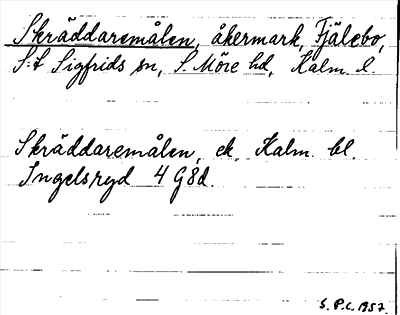 Skräddaremålen, åkermark, Fjälebo,
S:t Sigfrids sn, S. Möre hd, Kalm. l.
Skräddaremålen, ek. Kalm. bl.
Ingelsryd 4 G8d.
S. P.C. 1957.